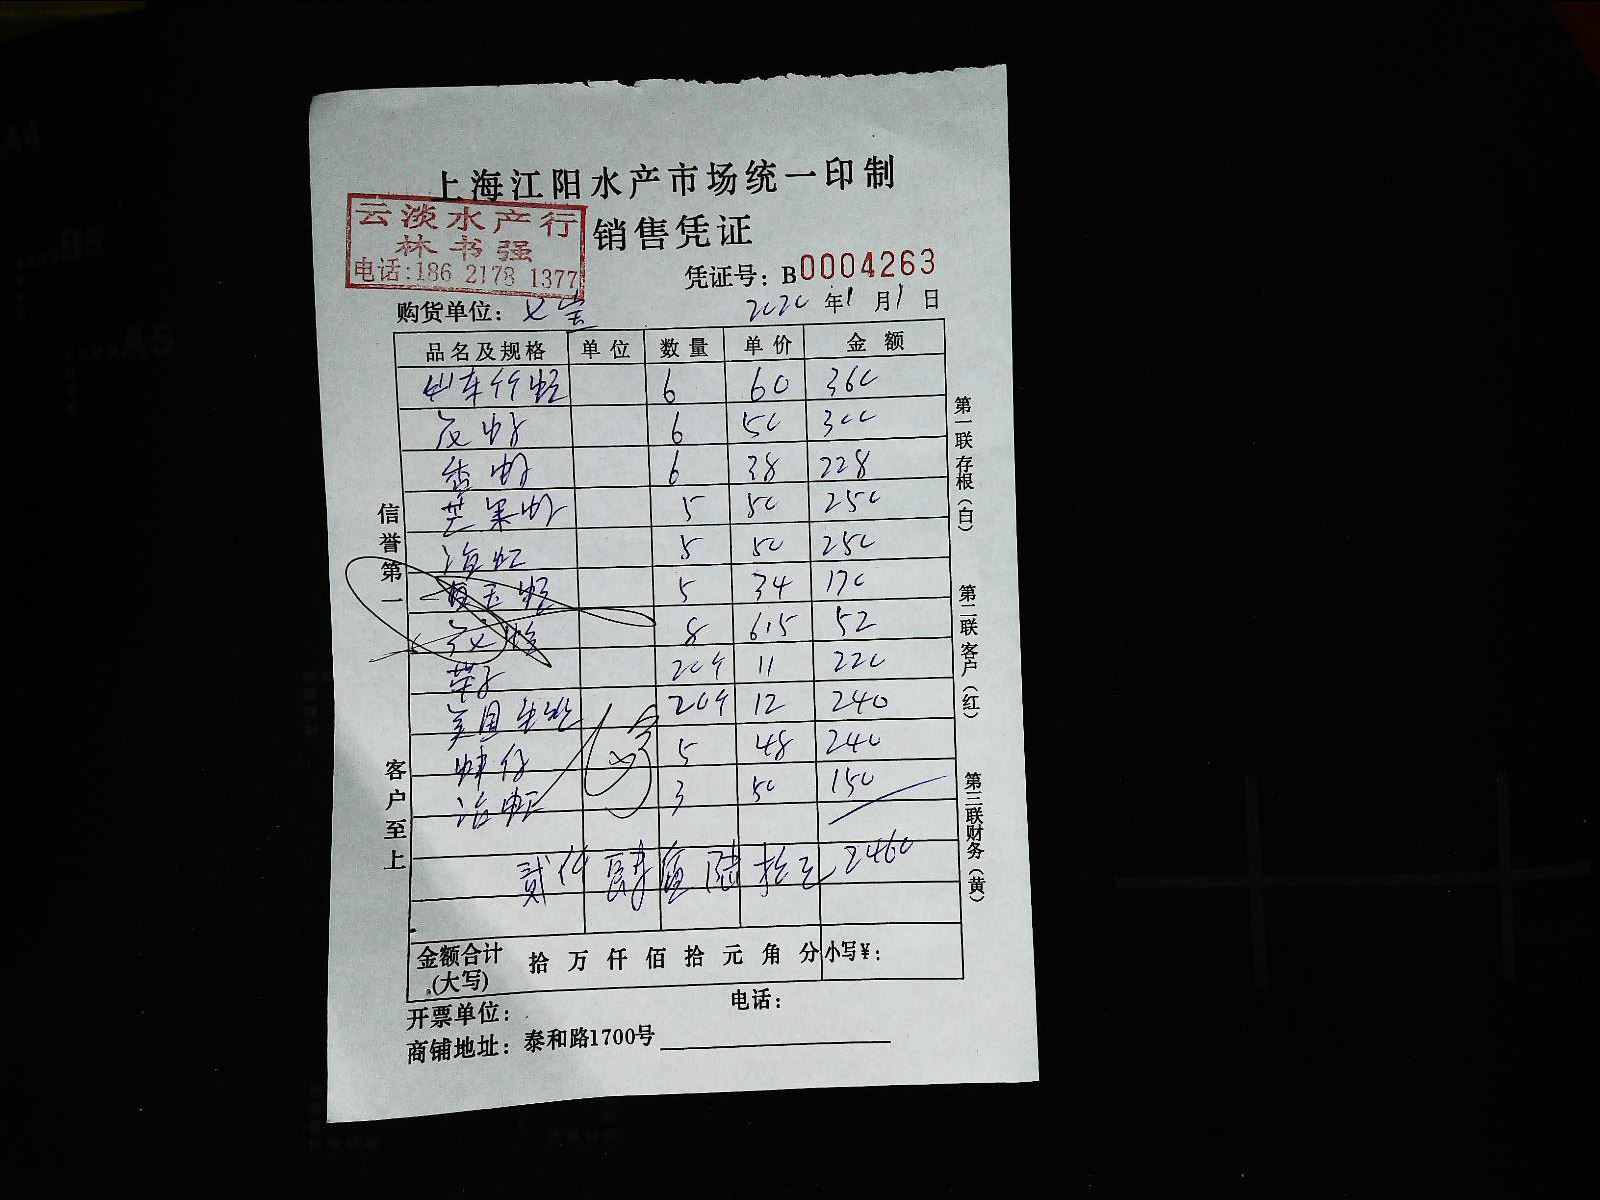 上海江阳水产市场统一印制
销售凭证
云淡水产行
林书强
电话:186 2178 1377
凭证号：B0004263
购货单位：
2020年1月1日
品名及规格 单位 数量 单价 金额
6 60 360
花蛤 6 50 300
6 38 228
芒果 5 50 250
5 50 250
5 34 170
8 6.5 52
20个 11 220
美国 20个 12 240
5 48 240
3 50 150
贰仟肆佰陆拾元 2460
金额合计(大写) 拾 万 仟 佰 拾 元 角 分 小写¥：
开票单位：
电话：
商铺地址：泰和路1700号
信誉第一
客户至上
第一联 存根（白）
第二联 客户（红）
第三联 财务（黄）